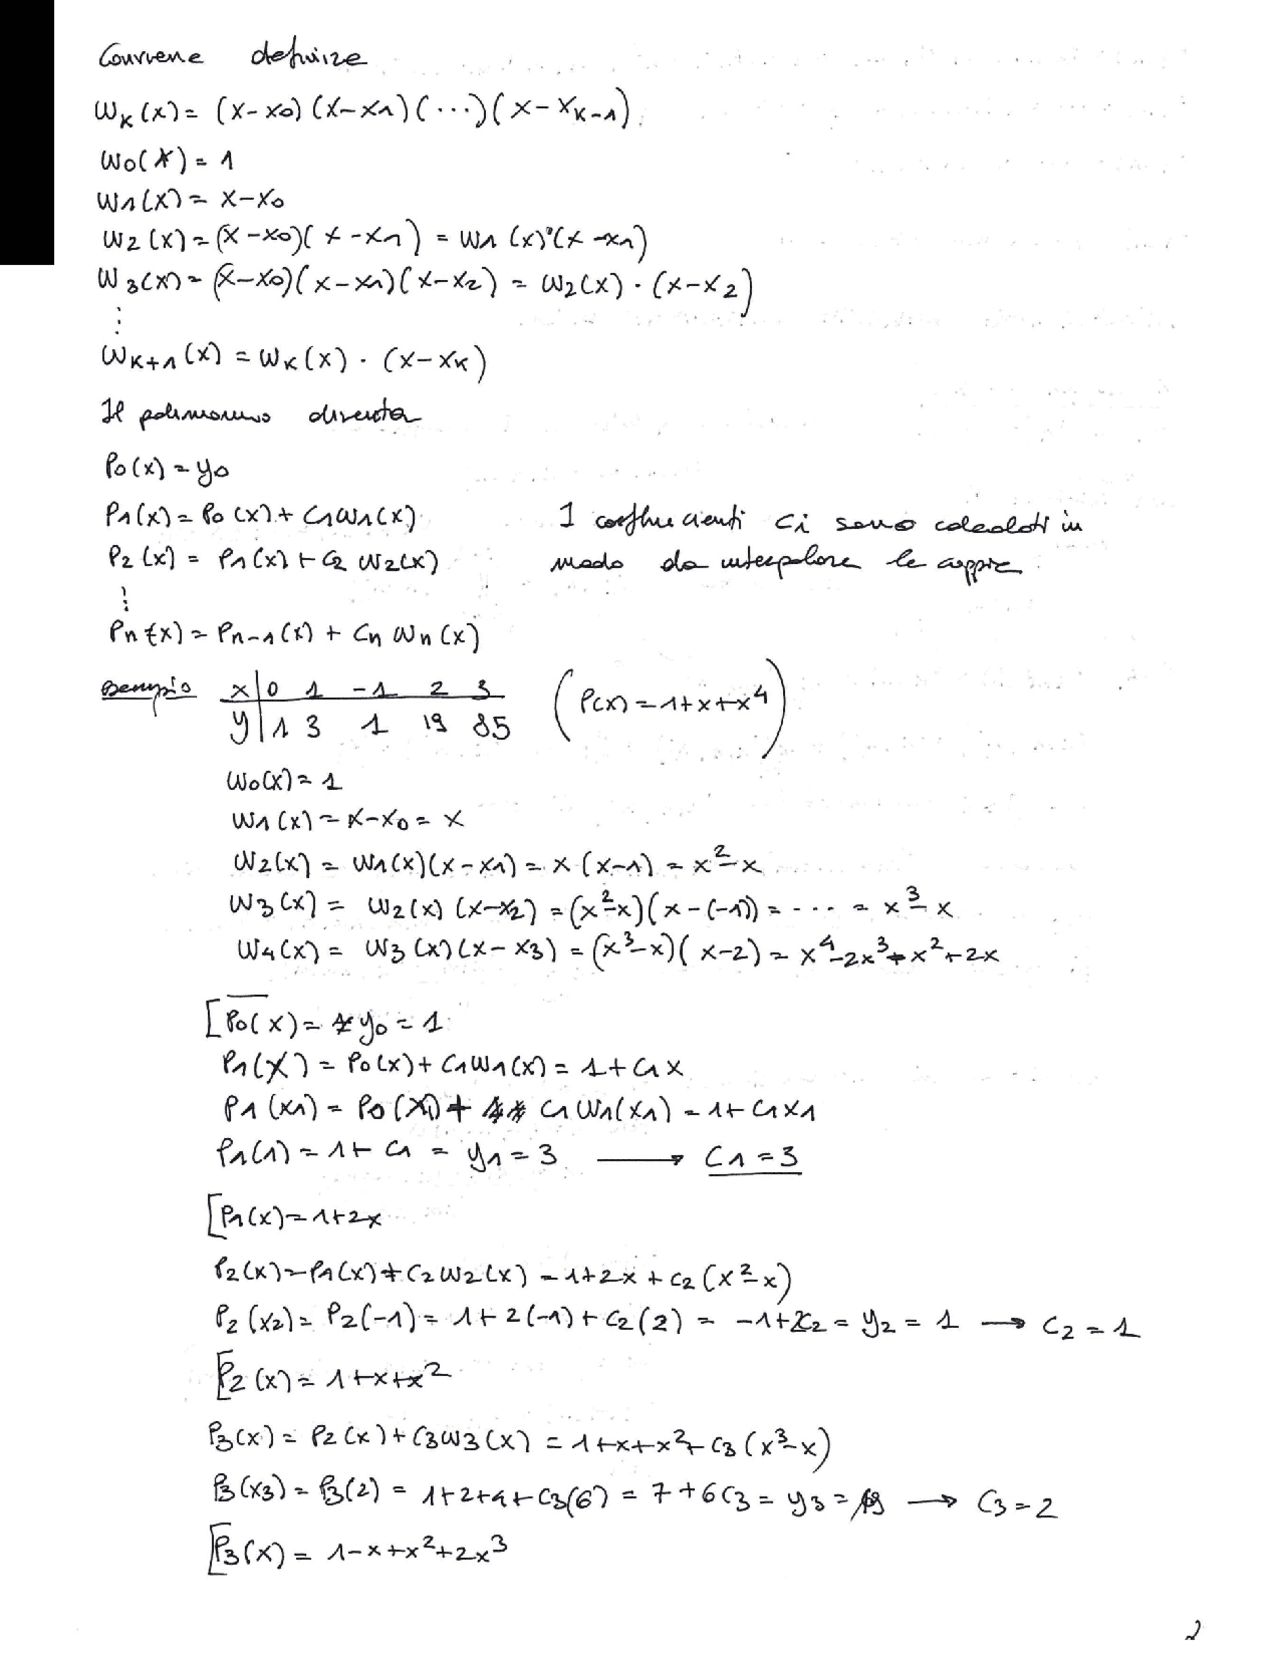 Conviene definire
ωk(x) = (x-x0)(x-x1)(...)(x-xk-1).
ω0(x) = 1
ω1(x) = x-x0
ω2(x) = (x-x0)(x-x1) = ω1(x)·(x-x1)
ω3(x) = (x-x0)(x-x1)(x-x2) = ω2(x)·(x-x2)
⋮
ωk+1(x) = ωk(x)·(x-xk)
Il polinomio diventa
P0(x) = y0
P1(x) = P0(x) + C1ω1(x)
P2(x) = P1(x) + C2 ω2(x)
I coefficienti Ci sono calcolati in
modo da interpolare le coppie
⋮
Pn(x) = Pn-1(x) + Cn ωn(x)
Esempio x | 0 1 -1 2 3 (P(x) = 1+x+x⁴)
y | 1 3 1 19 85
ω0(x) = 1
ω1(x) = x-x0 = x
ω2(x) = ω1(x)(x-x1) = x·(x-1) = x²-x
ω3(x) = ω2(x)(x-x2) = (x²-x)(x-(-1)) = ... = x³-x
ω4(x) = ω3(x)(x-x3) = (x³-x)(x-2) = x⁴-2x³-x²+2x
[P0(x) = y0 = 1
P1(x) = P0(x) + C1ω1(x) = 1+C1x
P1(x1) = P0(x1) + C1ω1(x1) = 1+C1x1
P1(1) = 1+C1 = y1 = 3 → C1=3
[P1(x) = 1+2x
P2(x) = P1(x) + C2ω2(x) = 1+2x+C2(x²-x)
P2(x2) = P2(-1) = 1+2(-1)+C2(2) = -1+2C2 = y2 = 1 → C2=1
[P2(x) = 1+x+x²
P3(x) = P2(x) + C3ω3(x) = 1+x+x²+C3(x³-x)
P3(x3) = P3(2) = 1+2+4+C3(6) = 7+6C3 = y3 = 19 → C3=2
[P3(x) = 1-x+x²+2x³
2